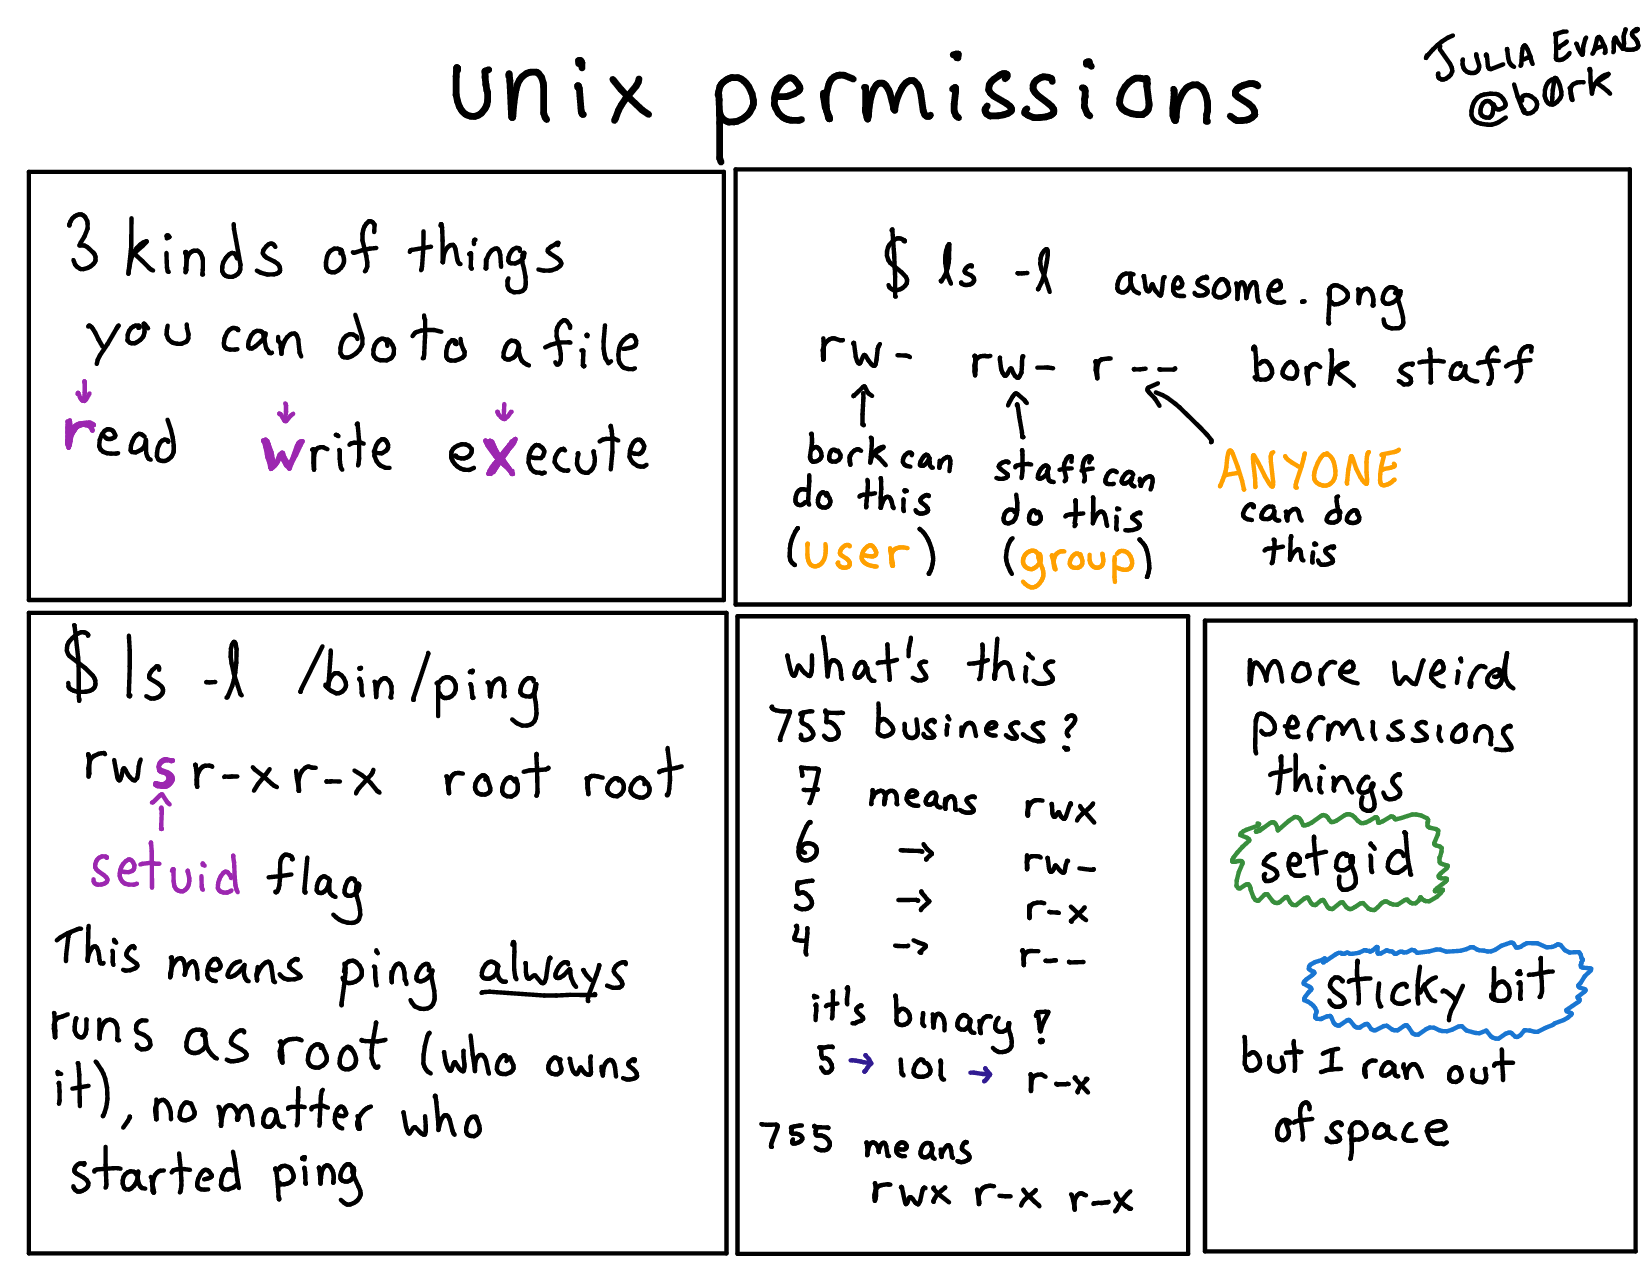 unix permissions
JULIA EVANS
@b0rk
3 kinds of things
you can do to a file
read write execute
$ ls -l awesome.png
rw- rw- r-- bork staff
bork can
do this
(user)
staff can
do this
(group)
ANYONE
can do
this
$ ls -l /bin/ping
rws r-x r-x root root
setuid flag
This means ping always
runs as root (who owns
it), no matter who
started ping
what's this
755 business?
7 means rwx
6 → rw-
5 → r-x
4 → r--
it's binary!
5 → 101 → r-x
755 means
rwx r-x r-x
more weird
permissions
things
setgid
sticky bit
but I ran out
of space